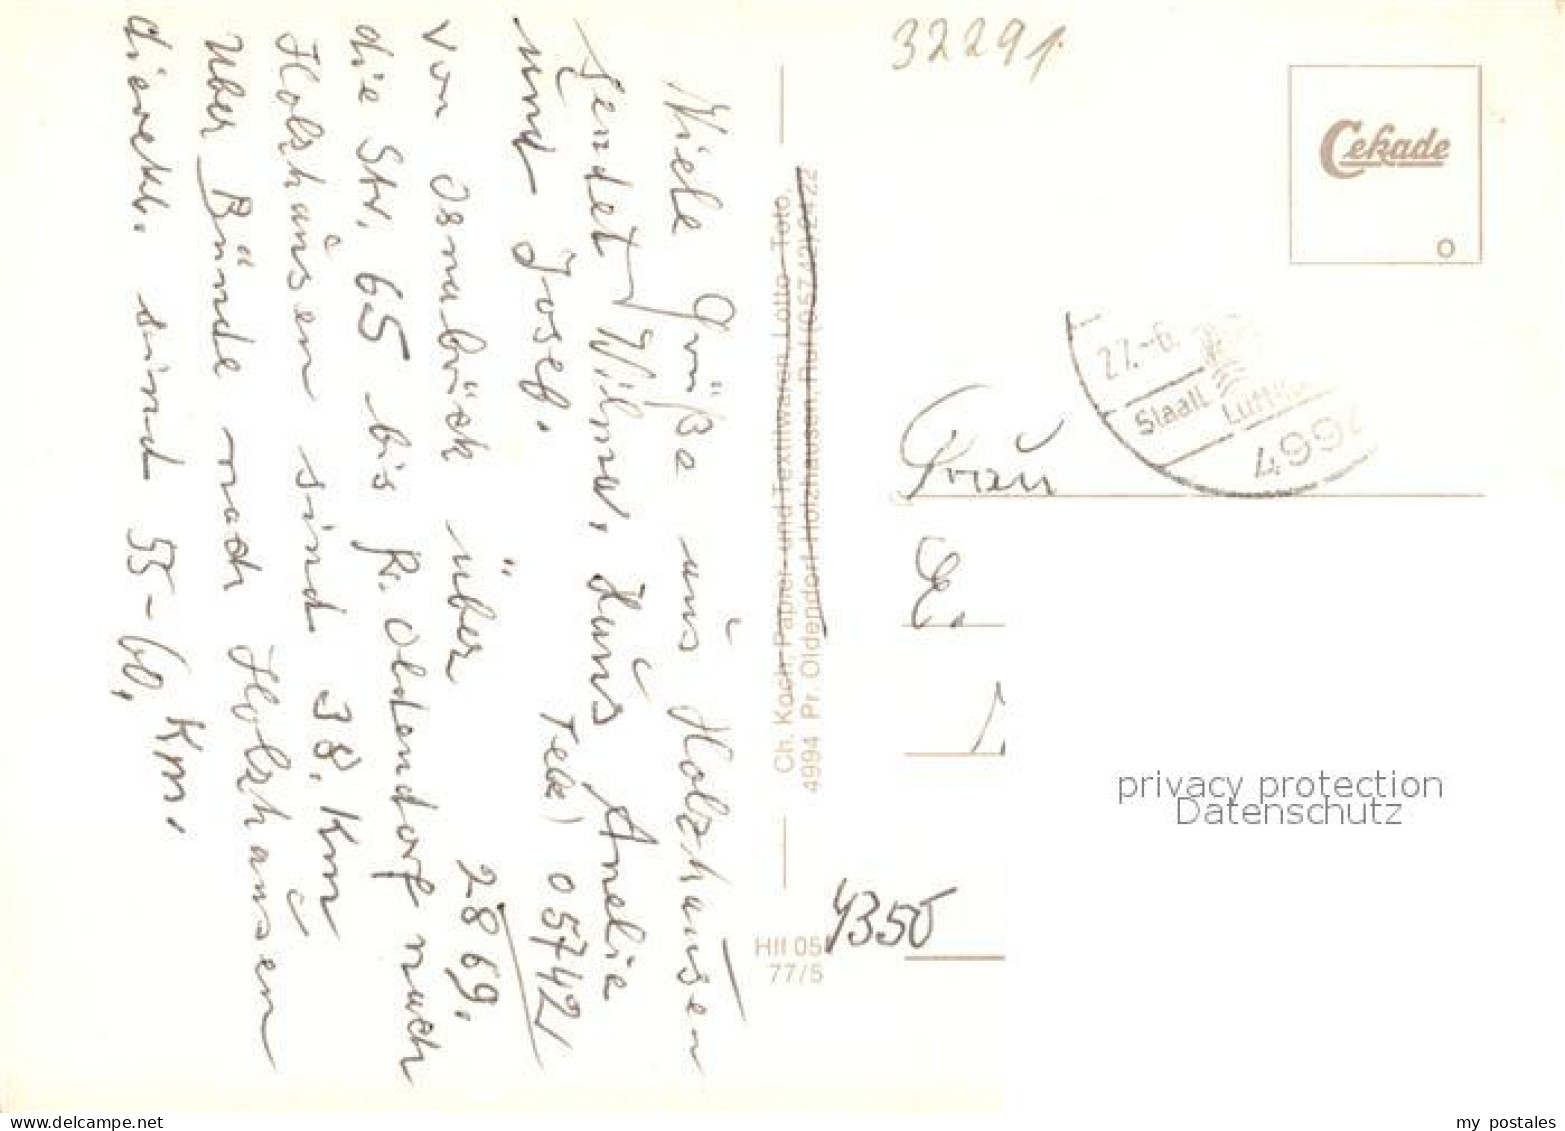 Viele Grüße aus Holzhausen
sendet Wilma, Hans Amelie
und Josef. Tele) 05742/
2869.
von Osnabrück über
die Str. 65 bis Pr. Oldendorf nach
Holzhausen sind 38. Km
über Bünde nach Holzhausen
direckt. sind 55-60, Km.
Ch. Koch, Papier- und Textilwaren, Lotto-Toto,
4994 Pr. Oldendorf-Holzhausen, Ruf (05742) 2422
HII 05
77/5
32291.
Cekade
27.-6.
Staatl
Luftku
499
Frau
E.
4350
privacy protection
Datenschutz
my postales